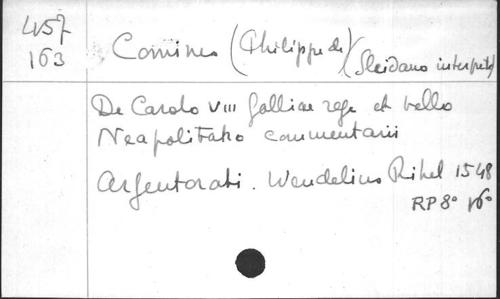 457
163
Comines (Philippe de) (Sleidano interprete)
De Carolo VIII Galliae rege et bello
Neapolitano commentarii
Argentorati. Wendelinus Rihel 1548
RP 8° 16°